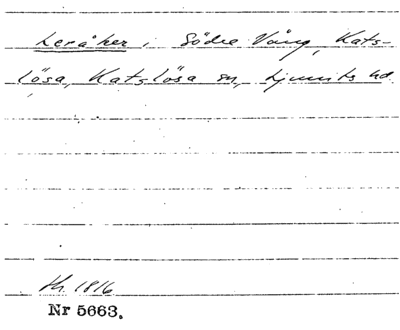 Leråker i Södra Vång, Kats-
lösa, Katslösa sn, Ljunits hd
Nr 5663.